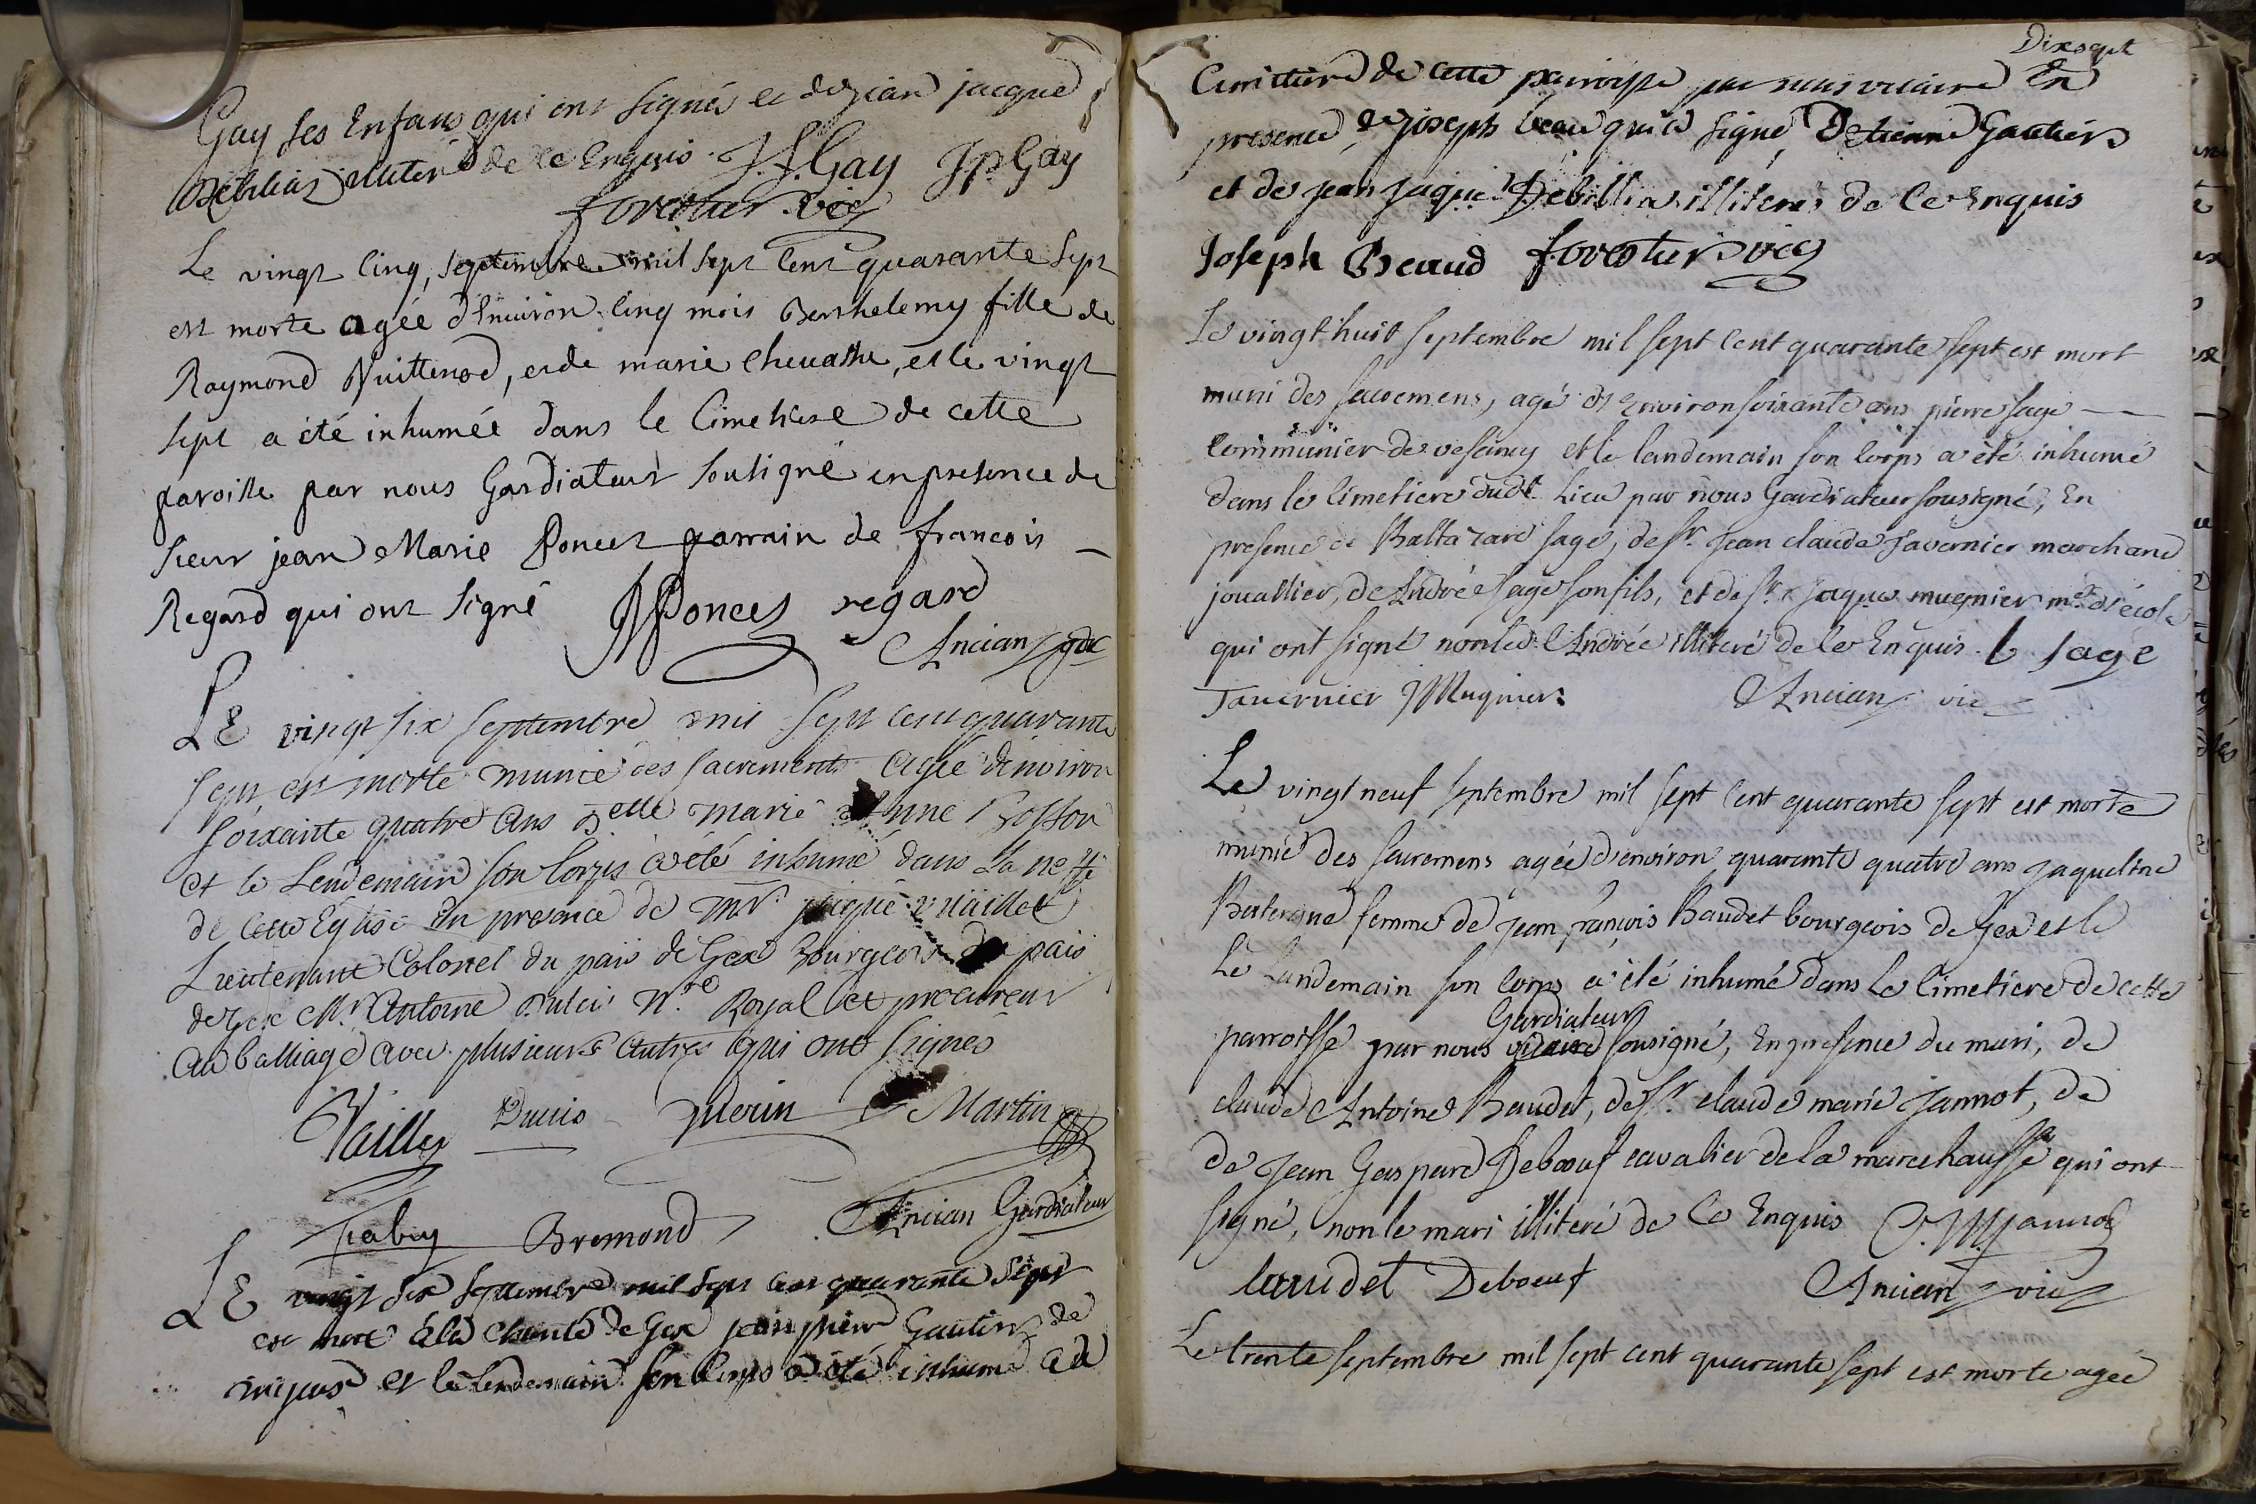 Gay ses Enfans qui ont signés et de jean jacque
Debilias illiteré de ce Enquis. J.F. Gay J p Gay
forestier vic
Le vingt cinq, septembre mil sept cent quarante sept
est morte agée d'Environ cinq mois Berthelemy fille de
Raymond Vuittenod, et de marie Chevasse, et le vingt
sept a été inhumée dans le Cimetiere de cette
paroisse par nous Gardiateur sousigné en presence de
sieur jean Marie Poncet parrain de francois
Regard qui ont signé JMPoncet regard
Ancian gdr
LE vingt six septembre mil sept cent quarante
sept, est morte munie des sacrements agée denviron
soixante quatre ans delle marie Anne Bosson
et le Lendemain son Corps a été inhumé dans La neffe
de Cette Eglise en presence de Mr jaque Vuaillet
Lieutenant Colonel du païs de Gex Bourgeois du païs
de Gex Mr Antoine Nre Royal et procureur
au balliage avec plusieurs Autres qui ont signés
Vaillet Martin
Fabry Bremond Ancian Gardiateur
LE vingt six septembre mil sept cent quarante sept
est mort a la charité de Gex jean pierre Gautier de
mijoux et le lendemain son Corps a été inhumé au
Dixsept
Cimitiere de cette parroisse par nous vicaire En
presence de joseph beau qui a signé, D'etienne Gautier
et de jean jaque Debillia illiteré de Ce Enquis
Joseph Beaud forestier vic
Le vingt huit septembre mil sept cent quarante sept est mort
muni des sacremens, agé d'Environ soixante ans pierre sage
Communier de vesancy et le landemain son Corps a été inhumé
dans le Cimetiere dudt Lieu par nous Gardiateur sousigné, En
presence de Baltazard sage, de sr Jean claude Tavernier marchand
jouallier, de Andrée sage son fils, et de sr jaques mugnier me d'école
qui ont signé non led. Andrée illiteré de Ce Enquis. b sage
Tavernier JMugnier Ancian vic
Le vingt neuf septembre mil sept cent quarante sept est morte
munie des sacremens agée d'environ quarante quatre ans jaqueline
femme de jean françois Baudet bourgeois de Gex et le
Le Landemain son Corps a été inhumé dans Le Cimetiere de cette
Gardiateur
parroisse par nous vicaire sousigné, En presence du mari, de
claude Antoine Baudet, de sr claude marie jannot, de
de jean Gaspard Deboeuf cavalier de la marechaussé qui ont
signé, non le mari illiteré de Ce Enquis C.M jannot
baudet Deboeuf Ancian vic
Le trente septembre mil sept cent quarante sept est morte agée